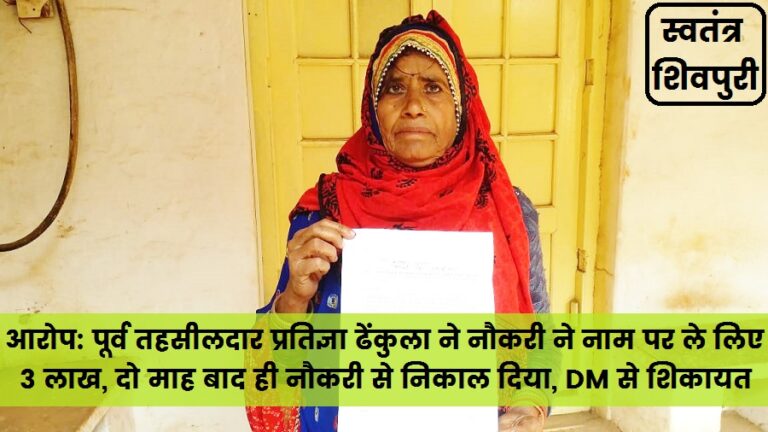 स्वतंत्र
शिवपुरी
आरोप: पूर्व तहसीलदार प्रतिज्ञा ढेंकुला ने नौकरी ने नाम पर ले लिए
3 लाख, दो माह बाद ही नौकरी से निकाल दिया, DM से शिकायत